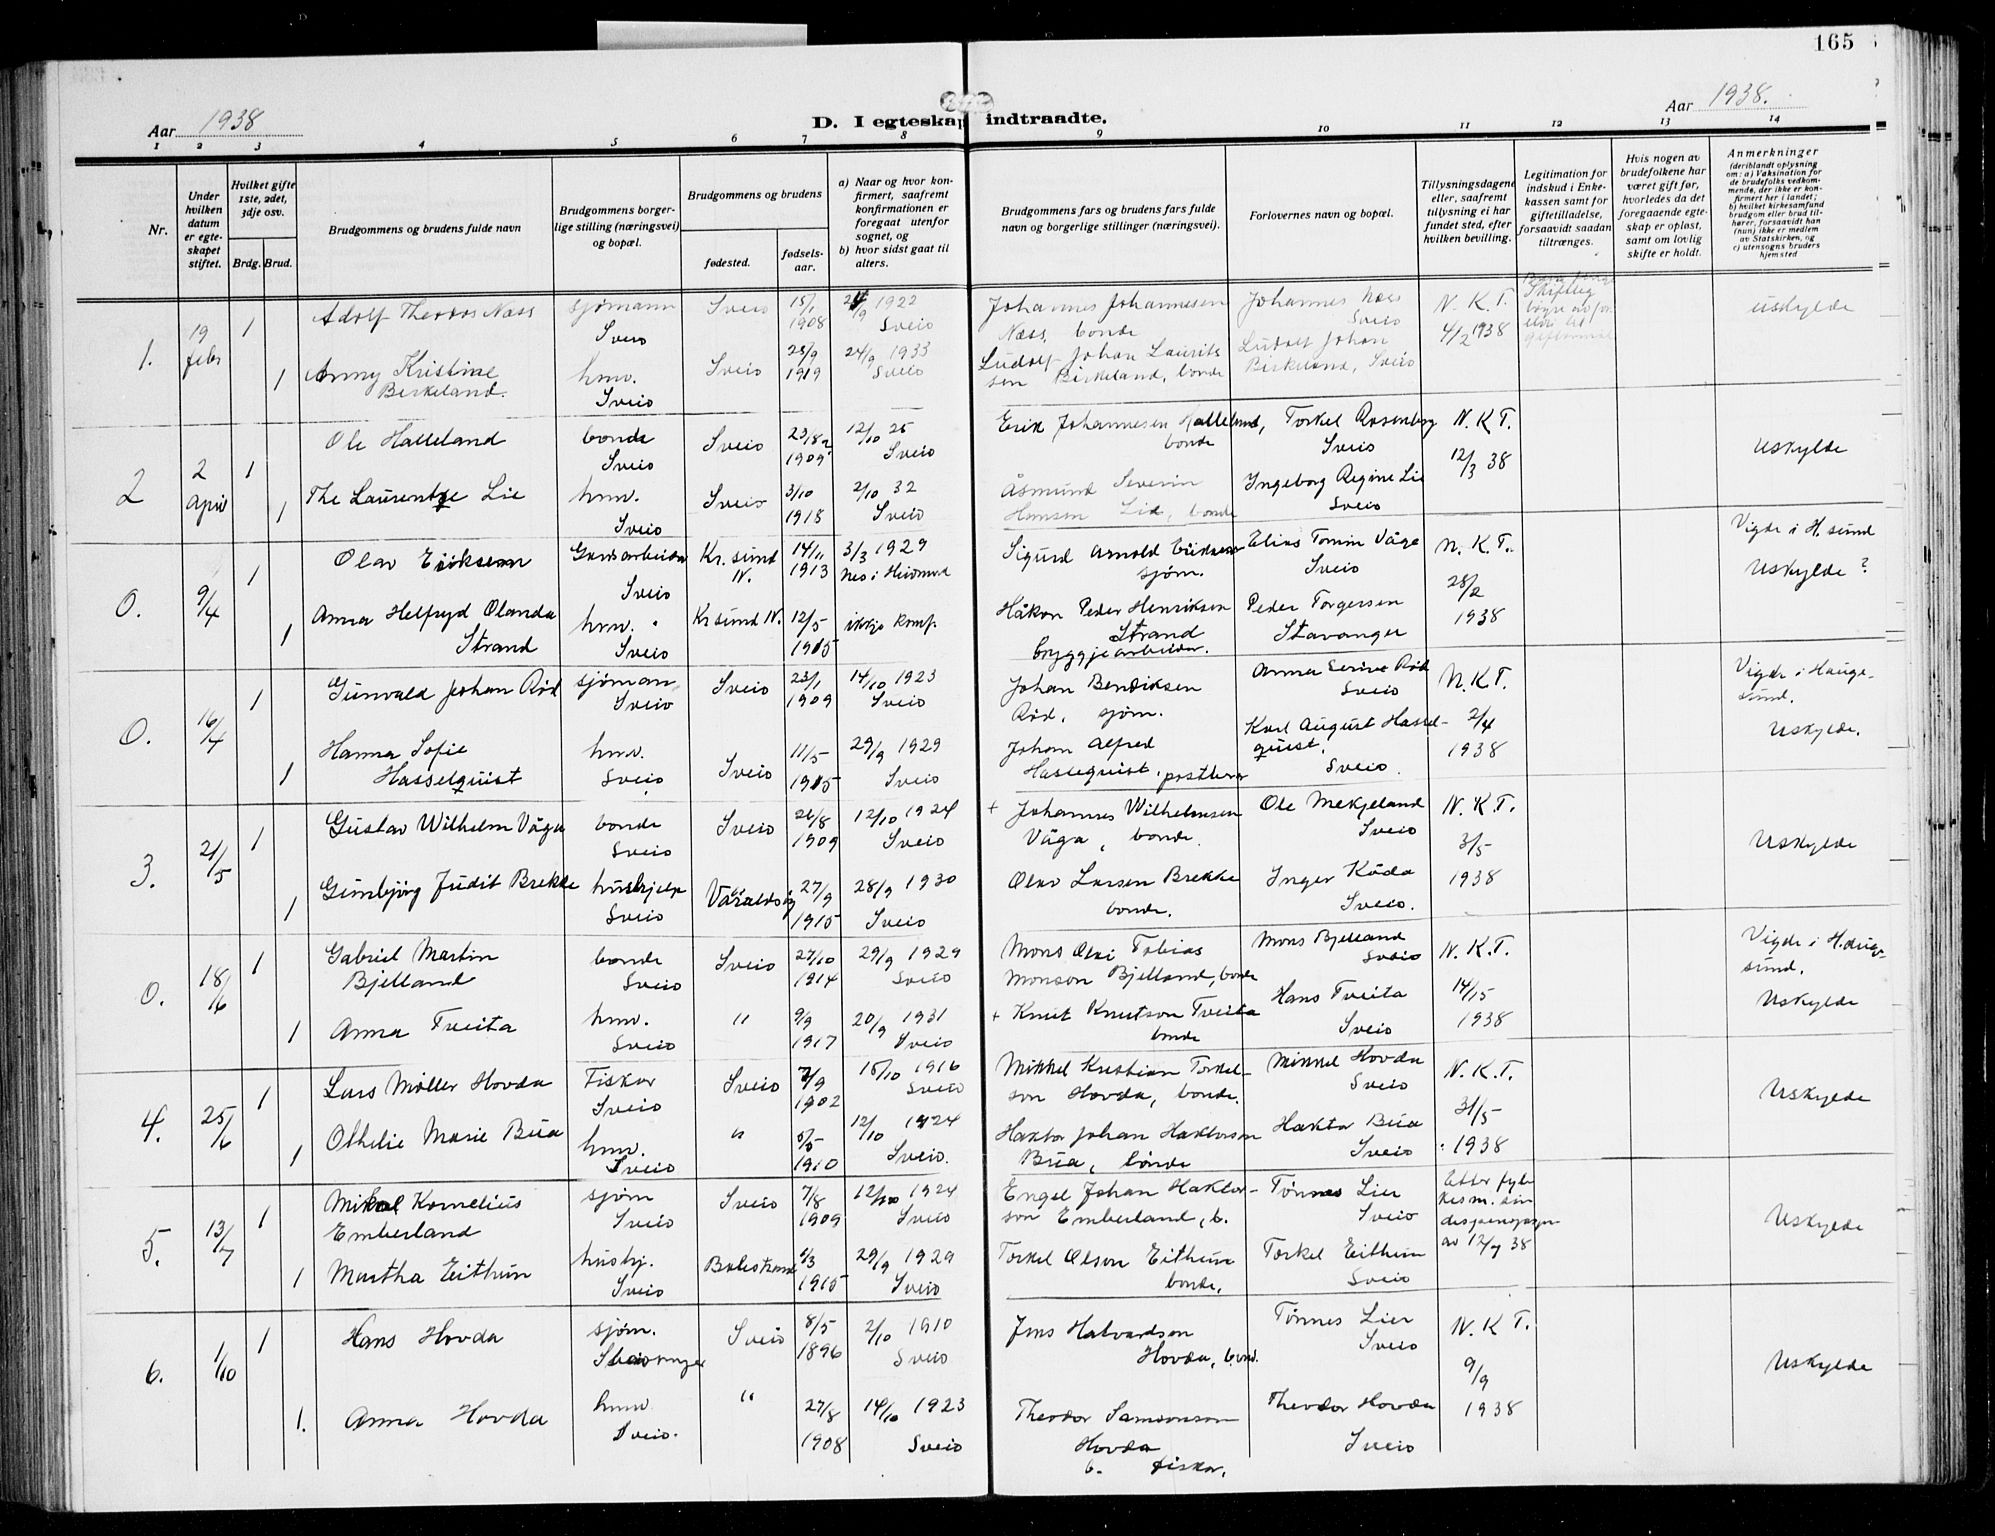 165
Aar 1938
Aar 1938.
D. I egteskap indtraadte.
1 2 3 4 5 6 7 8 9 10 11 12 13 14
Nr.
Under hvilken datum er egteskapet stiftet.
Hvilket gifte 1ste, 2det, 3dje osv.
Brdg. Brud.
Brudgommens og brudens fulde navn
Brudgommens borgerlige stilling (næringsvei) og bopæl.
Brudgommens og brudens
fødested.
fødselsaar.
a) Naar og hvor konfirmert, saafremt konfirmationen er foregaat utenfor sognet, og
b) hvor sidst gaat til alters.
Brudgommens fars og brudens fars fulde navn og borgerlige stillinger (næringsvei).
Forlovernes navn og bopæl.
Tillysningsdagene eller, saafremt tillysning ei har fundet sted, efter hvilken bevilling.
Legitimation for indskud i Enkekassen samt for giftetilladelse, forsaavidt saadan tiltrænges.
Hvis nogen av brudefolkene har været gift før, hvorledes da det foregaaende egteskap er opløst, samt om lovlig skifte er holdt.
Anmerkninger
(deriblandt oplysning om: a) Vaksination for de brudefolks vedkommende, der ikke er konfirmert her i landet; b) hvilket kirkesamfund brudgom eller brud tilhører, forsaavidt han (hun) ikke er medlem av Statskirken, og c) utensogns bruders hjemsted
1. 19 febr 1 Adolf Theodor Næss sjømann Sveio Sveio 15/1 1908 24/9 1922 Sveio Johannes Johannesen Næss, bonde Johannes Næss Sveio N. K. T. 4/2 1938 uskylde
1 Anny Kristine Birkeland. hmv. Sveio Sveio 25/9 1919 24/9 1933 Sveio Ludolf Johan Lauritssen Birkeland, bonde Ludolf Johan Birkeland, Sveio
2 2 april 1 Ole Halleland bonde Sveio Sveio 1909 12/10 25 Sveio Erik Johannesen Halleland, bonde Torkel Rosenberg Sveio N. K. T. 12/3 38 Uskylde
1 The Laurentze Lie hmv. Sveio Sveio 3/10 1918 2/10 32 Sveio Åsmund Severin Hansen Lie, bonde Ingeborg Regine Lie Sveio
0. 9/4 1 Olav Eriksen Gardsarbeidar Sveio Kr.sund N. 14/11 1913 3/3 1929 Nes i Heidmark Sigurd Arnold Eriksen sjøm. Elias Tomin Våge Sveio N. K. T. 28/2 1938 Vigde i H.sund Uskylde?
1 Anna Helfryd Olanda Strand hmv. Sveio Kr sund N. 12/5 1915 ikkje konf. Håkon Peder Henriksen Strand bryggjearbeider. Peder Torgersen Stavanger
0. 16/4 1 Gunvald Johan Rød sjøman Sveio Sveio 23/1 1909 14/10 1923 Sveio Johan Bendiksen Rød, sjøm. Anna Serine Rød Sveio N. K. T. 2/4 1938 Vigde i Haugesund. Uskylde.
1 Hanna Sofie Hasselquist hmv. Sveio Sveio 11/5 1915 29/9 1929 Sveio Johan Alfred Hasselquist, postberar Karl August Hasselquist. Sveio.
3. 21/5 1 Gustav Wilhelm Våga bonde Sveio Sveio 26/8 1909 12/10 1924 Sveio + Johannes Wilhelmsen Våga, bonde. Ole Mekjeland Sveio N. K. T. 3/5 1938 Uskylde
1 Gunbjørg Judit Brekke hushjelp Sveio Våraldsøy 27/9 1915 28/9 1930 Sveio Olav Larsen Brekke bonde. Inger Kåda Sveio.
0. 18/6 1 Gabriel Martin Bjelland bonde Sveio Sveio 27/10 1914 29/9 1929 Sveio Mons Olai Tobias Monson Bjelland, bonde Mons Bjelland Sveio N. K. T. 14/15 1938 Vigde i Haugesund. Uskylde
1 Anna Tveita hmv. Sveio " 9/9 1917 20/9 1931 Sveio + Knut Knutson Tveita bonde Hans Tveita Sveio
4. 25/6 1 Lars Møller Hovda Fiskar Sveio Sveio 7/9 1902 15/10 1916 Sveio Mikkel Kristian Torkelson Hovda, bonde. Mikkel Hovda Sveio N. K. T. 31/5 1938 Uskylde
1 Othelie Marie Bua hmv. Sveio " 5/5 1910 12/10 1924 Sveio. Haktor Johan Haktorson Bua, bonde Haktor Bua Sveio
5. 13/7 1 Mikal Kornelius Emberland sjøm Sveio Sveio 7/8 1909 12/10 1924 Sveio Engel Johan Haktorson Emberland, b. Tønnes Lier Sveio Etter fylkesm. sin av 12/7 38 Uskylde
1 Martha Eithun hushj. Sveio Balestrand 1/3 1915 29/9 1929 Sveio Torkel Olson Eithun bonde. Torkel Eithun Sveio
6. 1/10 1 Hans Hovda sjøm. Stavanger Sveio 8/5 1896 2/10 1910 Sveio Jens Halvardson Hovda, bond. Tønnes Lier Sveio N. K T. 9/9 1938 Uskylde
1. Anna Hovda hmv Sveio. " 27/8 1908 14/10 1923 Sveio Theodor Samsonson Hovda b. fiskar. Theodor Hovda Sveio